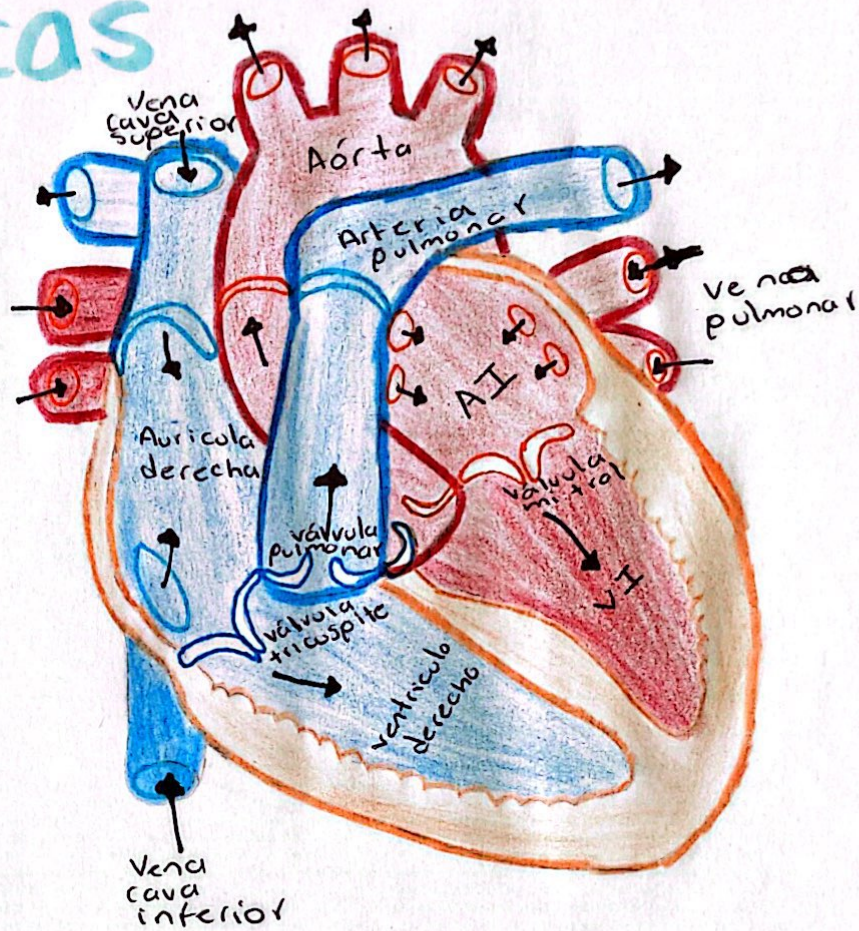 cas
Vena
cava
superior
Aórta
Arteria
pulmonar
Vena
pulmonar
AI
Auricula
derecha
válvula
mitral
VI
válvula
pulmonar
válvula
tricuspite
ventriculo
derecho
Vena
cava
inferior